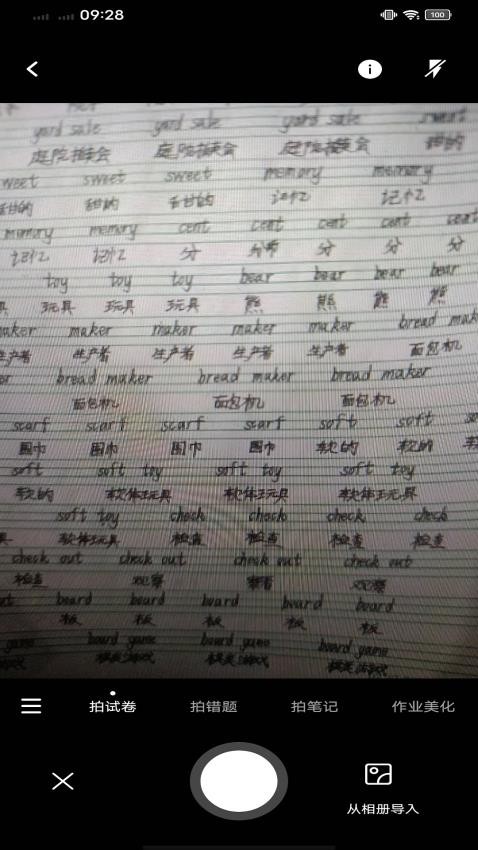 09:28
100
yard sale yard sale yard sale sweet
庭院拍卖会 庭院拍卖会 庭院拍卖会 甜的
sweet sweet memory memory
甜的 甜的 记忆 记忆
memory cent cent cent cent
记忆 记忆 分 分币 分 分 分
toy toy toy bear bear bear bear
玩具 玩具 玩具 熊 熊 熊 熊
maker maker maker maker maker bread
生产者 生产者 生产者 生产者 面包机
bread maker bread maker bread maker
面包机 面包机 面包机
scarf scarf scarf scarf soft soft
围巾 围巾 围巾 围巾 软的 软的
soft soft toy soft toy soft toy
软的 软体玩具 软体玩具 软体玩具
soft toy check check check check
软体玩具 检查 检查 检查 检查
check out check out check out check out
检查 观察 察看 观察
board board board board board
板 板 板 板 板
game board game board game board game
棋类游戏 棋类游戏 棋类游戏
拍试卷 拍错题 拍笔记 作业美化
从相册导入